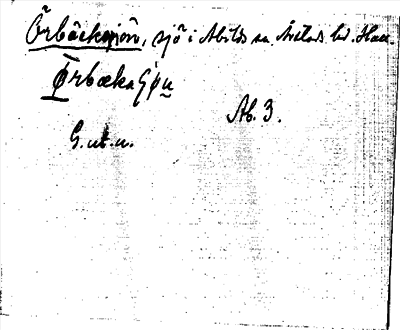 Örbäcksjön, sjö i Abilds sn. Årstads hd. Hall.
Ørbækaʃǿu
Ab. 3.
G. ut. u.